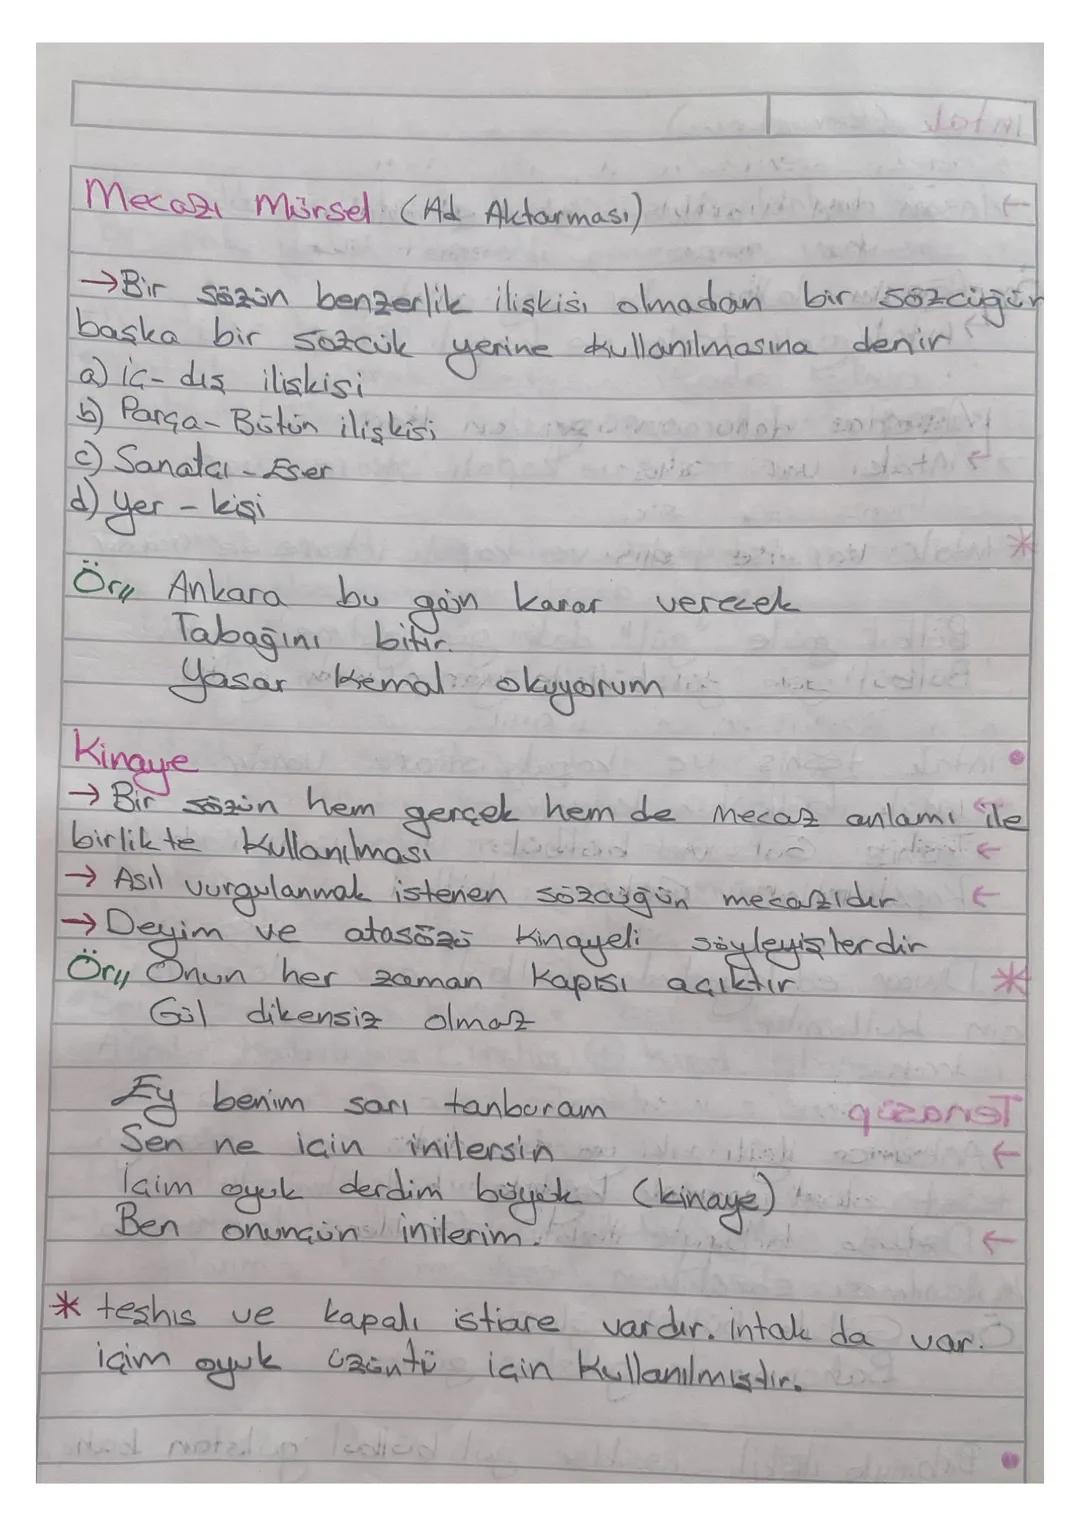 Mecazı Mürsel (Ad Aktarması)
→Bir sözün benzerlik ilişkisi olmadan bir sözcüğün
başka bir sözcük yerine kullanılmasına denir
a) iç-dış ilişkisi
b) Parça-Bütün ilişkisi
c) Sanatçı-Eser
d) Yer-kişi
Ör,, Ankara bu gün karar verecek
Tabağını bitir.
Yaşar Kemal okuyorum
Kinaye
→ Bir sözün hem gerçek hem de mecaz anlamı ile
birlikte kullanılması
→ Asıl vurgulanmak istenen sözcüğün mecazıdır
→ Deyim ve atasözü kinayeli söyleyişlerdir
Ör,, Onun her zaman kapısı açıktır
Gül dikensiz olmaz
Ey benim sarı tanburam
Sen ne için inilersin
İçim oyuk derdim büyük (kinaye)
Ben onunçün inilerim.
* teşhis ve kapalı istiare vardır. intak da var.
içim oyuk üzüntü için kullanılmıştır.